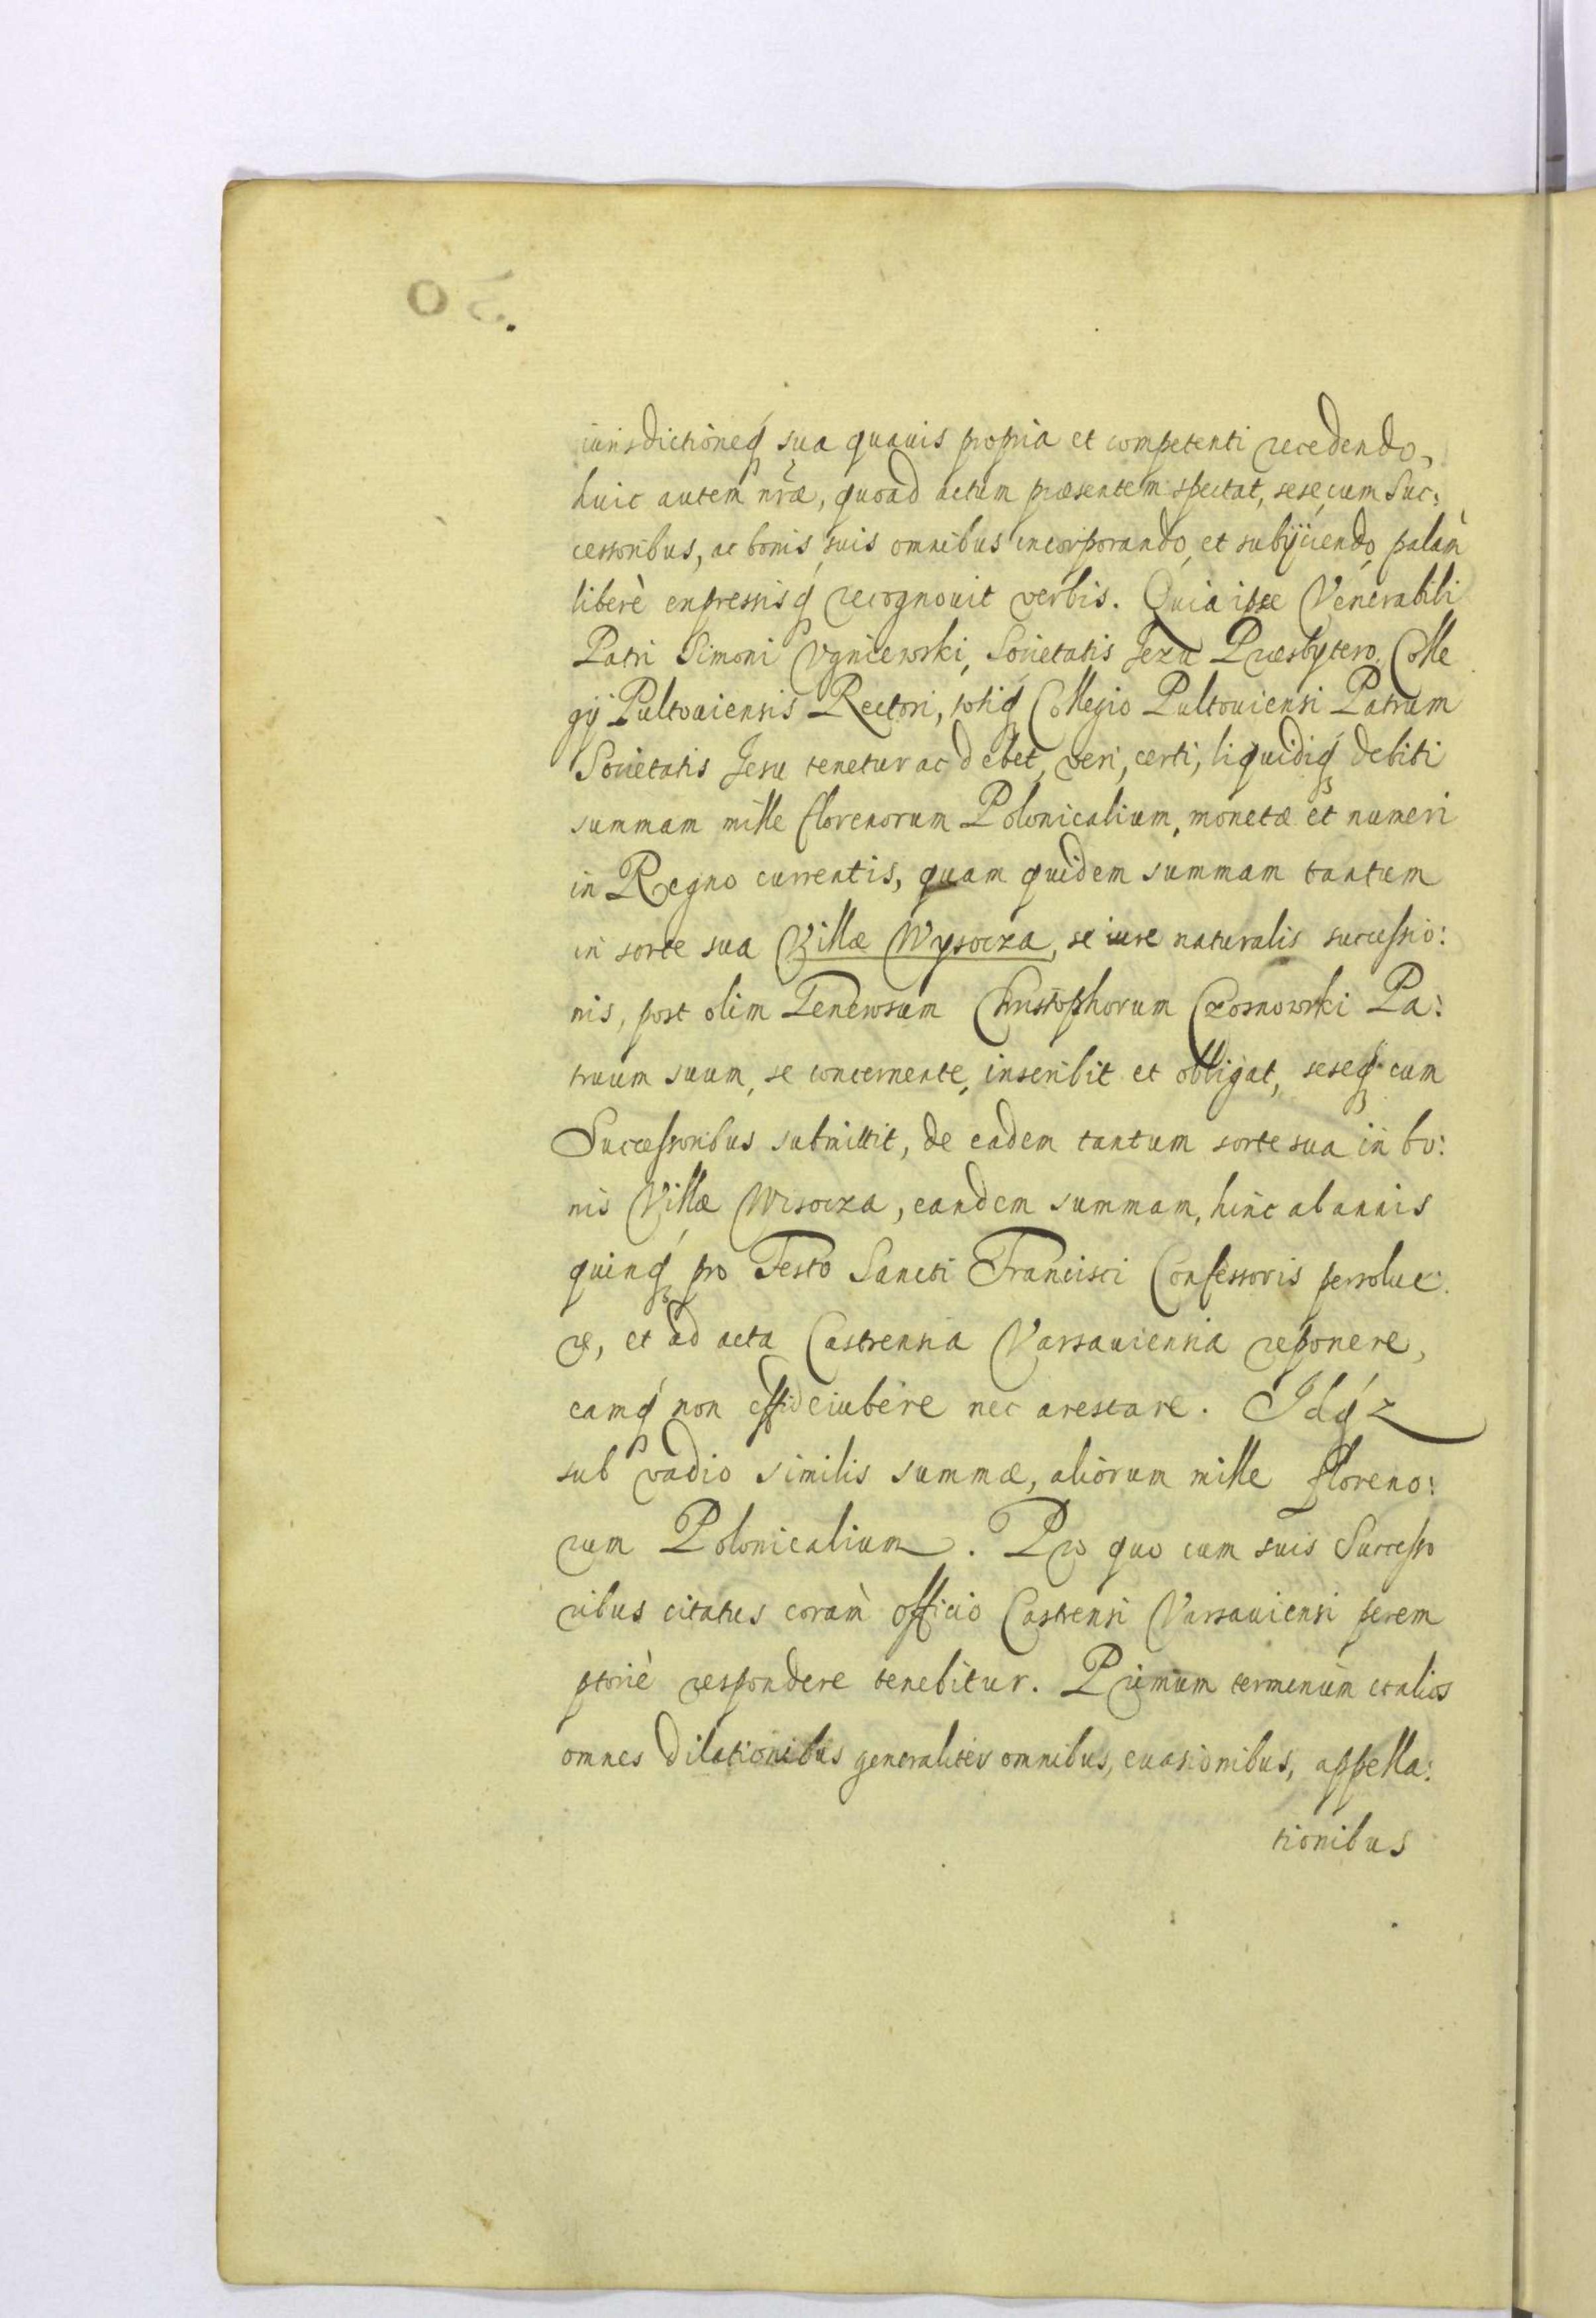 iurisdictioneq́ sua quauis propria et competenti recedendo,
huic autem nr̃æ, quoad actum præsentem spectat, sese, cum Suc:
cessoribus, ac bonis suis omnibus incorporando, et subijciendo, palàm
liberè expressisq́ recognouit verbis. Quia ipse Venerabili
Patri Simoni Vgniewski, Societatis Jezu Præsbytero, Colle
gij Pultouiensis Rectori, totiq́ Collegio Pultouiensi Patrum
Societatis Jesu tenetur ac debet, veri, certi, liquidiq́ debiti
summam mille florenorum Polonicalium, monetæ et numeri
in Regno currentis, quam quidem summam tantum
in sorte sua Villæ Wysocza, se iure naturalis successio:
nis, post olim Generosum Christophorum Czosnowski Pa:
truum suum, se concernente, inscribit et obligat, seseq́ cum
Successoribus submittit, de eadem tantum sorte sua in bo:
nis Villæ Wisocza, eandem summam, hinc ab annis
quinq́ pro Festo Sancti Francisci Confessoris persolue:
re, et ad acta Castrensia Varsauiensia reponere,
eamq́ non eiubere nec arestare. Idq́z
sub vadio similis summæ, aliorum mille floreno:
rum Polonicalium. Pro quo cum suis Successo
ribus citatus coràm officio Castrensi Varsauiensi perem
ptoriè respondere tenebitur. Primum terminum et alios
omnes dilationibus generaliter omnibus, euasionibus, appella:
tionibus